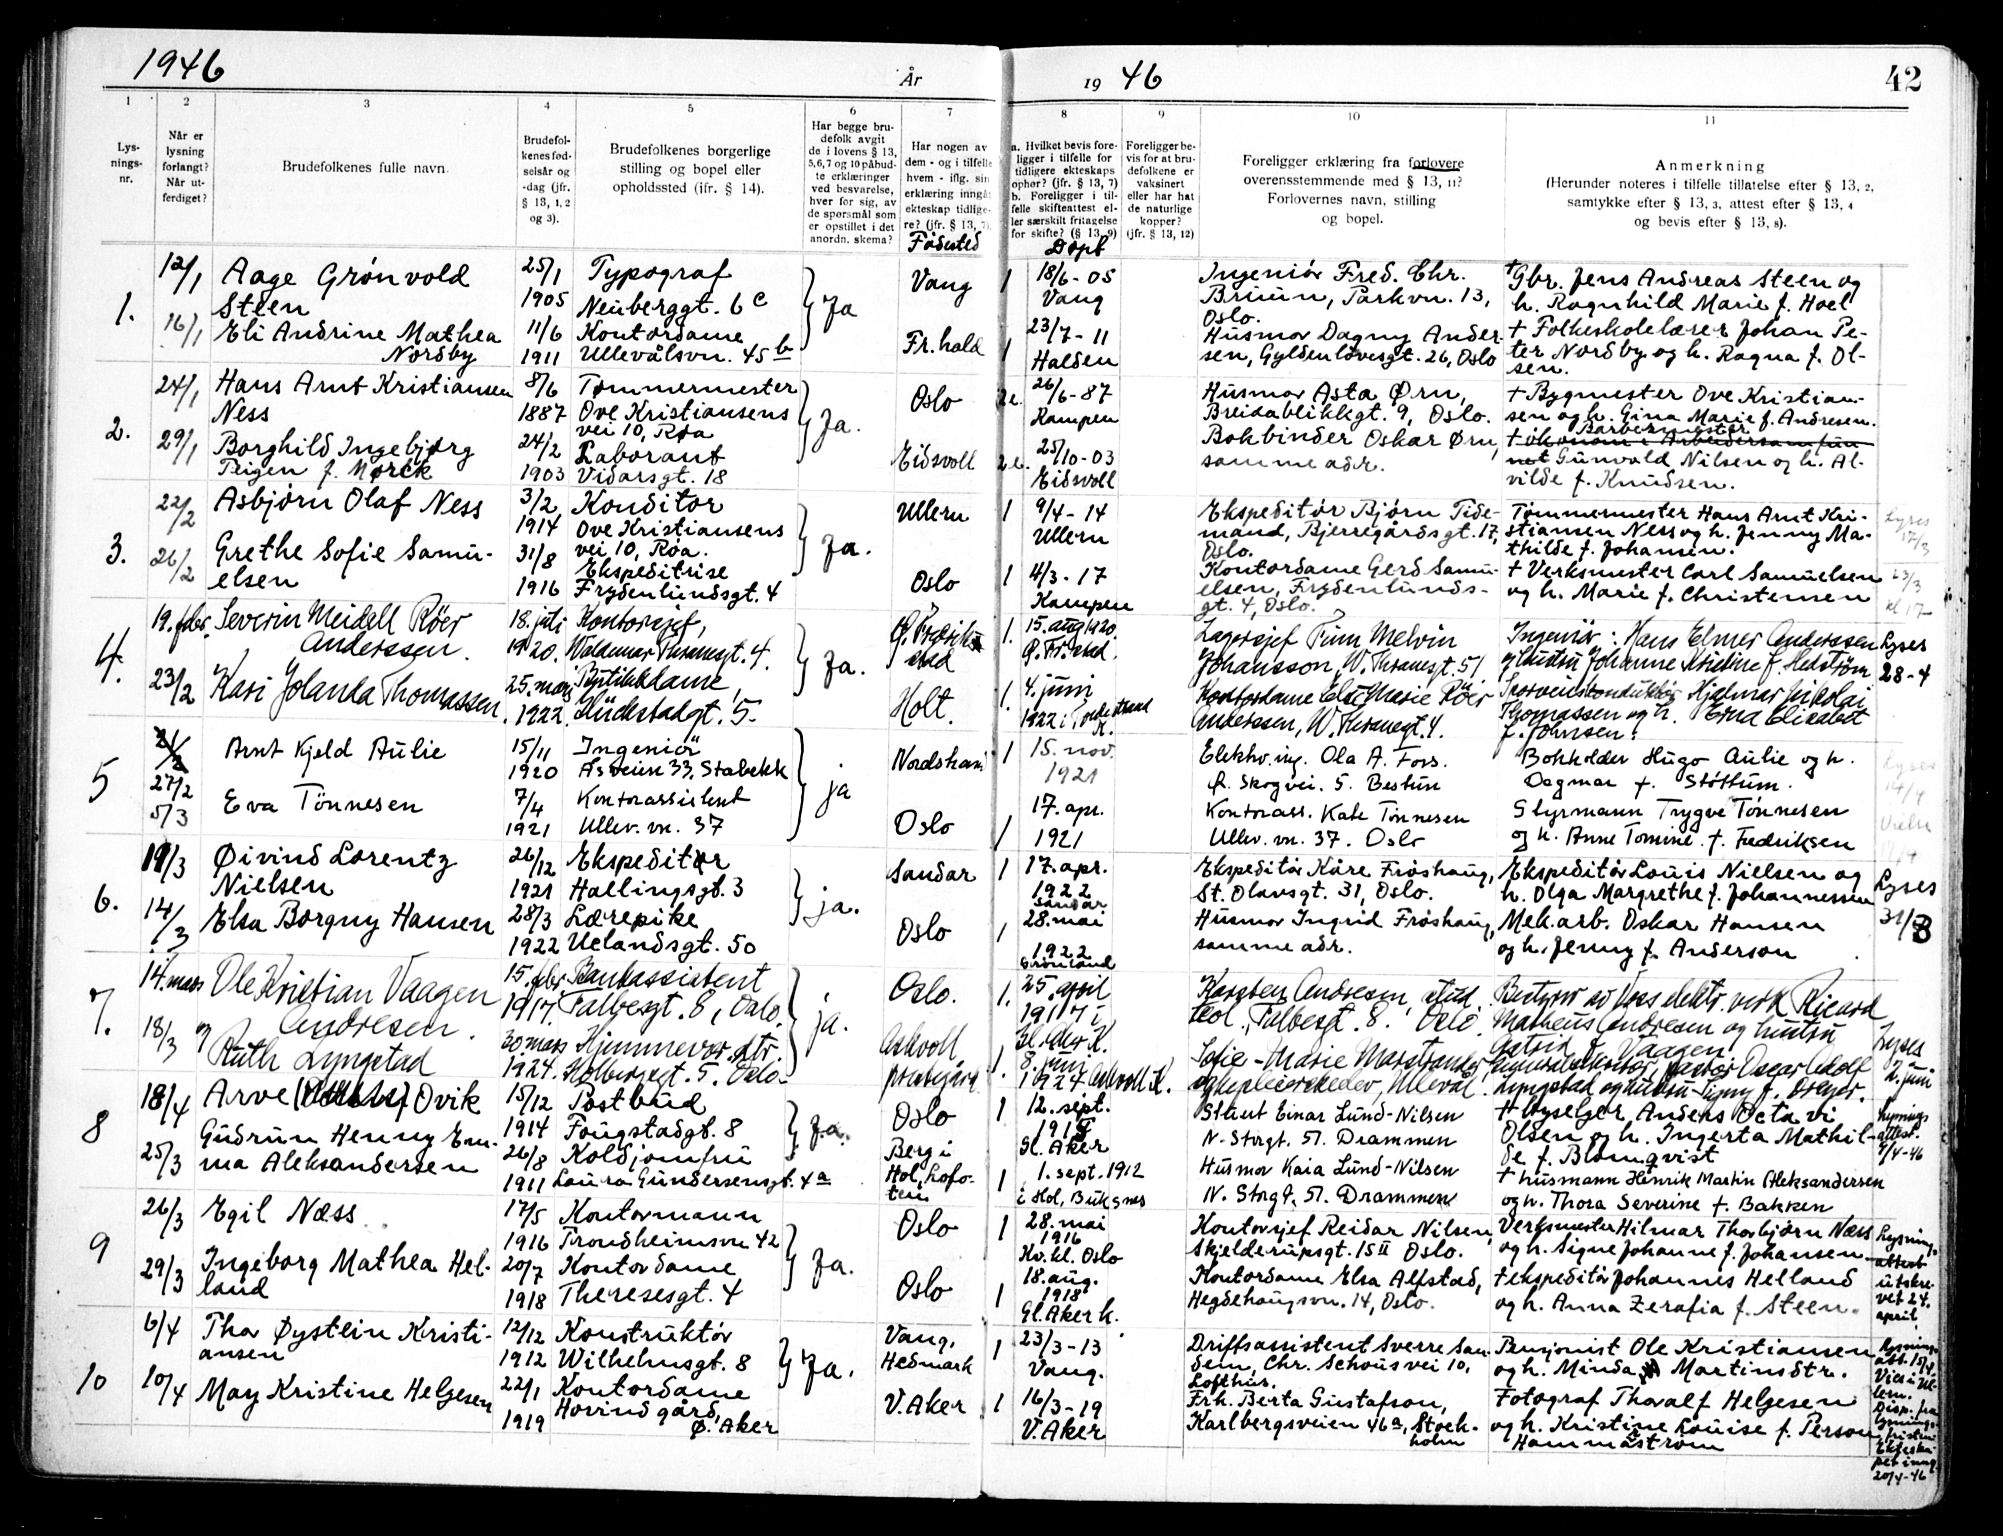 1946
År
19 46
42
1 2 3 4 5 6 7 8 9 10 11
Lys-
nings-
nr.
Når er
lysning
forlangt?
Når ut-
ferdiget?
Brudefolkenes fulle navn.
Brudefol-
kenes fød-
selsår og
-dag (jfr.
§ 13, 1, 2
og 3).
Brudefolkenes borgerlige
stilling og bopel eller
opholdssted (jfr. § 14).
Har begge bru-
defolk avgit
de i lovens § 13,
5, 6, 7 og 10 påbud-
te erklæringer
ved besvarelse,
hver for sig, av
de spørsmål som
er opstillet i det
anordn. skema?
Har nogen av
dem - og i tilfelle
hvem - iflg. sin
erklæring inngå
ekteskap tidlige-
re? (jfr. § 13, 7).
Fødested
a. Hvilket bevis fore-
ligger i tilfelle for
tidligere ekteskaps
ophør? (jfr. § 13, 7)
b. Foreligger i til-
felle skifteattest el-
ler særskilt fritagelse
for skifte? (§ 13, 9)
Døpt
Foreligger be-
vis for at bru-
defolkene er
vaksinert
eller har hat
de naturlige
kopper?
(jfr. § 13, 12)
Foreligger erklæring fra forlovere
overensstemmende med § 13, 11?
Forlovernes navn, stilling
og bopel.
Anmerkning
(Herunder noteres i tilfelle tillatelse efter § 13, 2,
samtykke efter § 13, 3, attest efter § 13, 4
og bevis efter § 13, 8).
1.
12/1
16/1
Aage Grönvold
Steen
Eli Andrine Mathea
Nordby
25/1
1905
11/6
1911
Typograf
Neuberggt. 6 c
Kontordame
Ullevålsvn. 45 b
Ja
Vang
Fr.hald
1
1
18/6-05
Vang
23/7-11
Halden
Ingeniör Fred. Chr.
Bruun, Parkvn. 13,
Oslo.
Husmor Dagny Ander-
sen, Gyldenløvesgt. 26, Oslo
+ Gbr. Jens Andreas Steen og
h. Ragnhild Marie f. Hoel
+ Folkeskolelærer Johan Pe-
ter Nordby og h. Ragna f. Ol-
sen.
2.
24/1
29/1
Hans Arnt Kristiansen
Ness
Borghild Ingebjørg
Teigen f. Mørck
8/6
1887
24/2
1903
Tømmermester
Ove Kristiansens
vei 10, Røa
Laborant
Vidarsgt. 18
Ja.
Oslo
Eidsvoll
2 e.
2 e.
26/6-87
Kampen
25/10-03
Eidsvoll
Husmor Asta Ørn,
Breidablikkgt. 9, Oslo.
Bokbinder Oskar Ørn,
samme adr.
+ Bygmester Ove Kristian-
sen og h. Gina Marie f. Andresen.
Barbermester
+ økonom i Arbeidersamfun-
net Gunvald Nilsen og h. Al-
vilde f. Knudsen.
3.
22/2
26/2
Asbjørn Olaf Ness
Grethe Sofie Samu-
elsen
3/2
1914
31/8
1916
Konditor
Ove Kristiansens
vei 10, Røa.
Ekspeditrise
Frydenlundsgt. 4
Ja.
Ullern
Oslo
1
1
9/4-14
Ullern
4/3-17
Kampen
Ekspeditør Bjørn Tide-
mand, Bjerregårdsgt. 17,
Oslo.
Kontordame Gerd Samu-
elsen, Frydenlunds-
gt. 4, Oslo.
Tømmermester Hans Arnt Kri-
stiansen Ness og h. Jenny Ma-
thilde f. Johansen.
+ Verksmester Carl Samuelsen
og h. Marie f. Christensen
Lyses
17/3
23/3
kl 17
4.
19. febr.
23/2
Severin Meidell Röer
Anderssen.
Kari Jolanda Thomassen.
18. juli
1920.
25. mars
1922.
Kontorsjef,
Waldemar Thranesgt. 4.
Butikkdame,
Glückstadgt. 5.
Ja.
G. Fredrik-
stad
Holt.
1.
1.
15. aug 1920.
G. Fr.stad.
4. juni
1922
Lagersjef Finn Melvin
Johansson, W. Thranesgt. 51
Kontordame Else Marie Röer
Anderssen, W. Thranesgt. 4.
Ingeniör Hans Elmer Anderssen
og hustru Johanne Kristine f. Hedström
Sporveiskonduktör Hjalmar Nikolai
Thomassen og h. Erna Elisabet
f. Johnsen.
Lyses
28-4
5
27/2
5/3
Arnt Kjeld Aulie
Eva Tönnesen
15/11
1920
7/4
1921
Ingeniör
Åsveien 33, Stabekk
Kontorassistent
Ullev. vn. 37
ja
Nordstrand
Oslo
1
1
15. nov.
1921
17. apr.
1921
Elektro.ing. Ola A. Fors.
Ø. Skogvei. 5. Bestun
Kontorass. Kate Tönnesen
Ullev. vn. 37. Oslo
Bokholder Hugo Aulie og h.
Dagmar f. Stöttum.
Styrmann Trygve Tönnesen
og h. Anne Tomine f. Fredriksen
Lyses
14/4
6.
11/3
14/3
Øivind Lorentz
Nielsen
Elsa Borgny Hansen
26/12
1921
28/3
1922
Ekspeditør
Hallingsgt. 3
Lærepike
Uelandsgt. 50
ja.
Sandar
Oslo
1
1
17. apr.
1922
Sandar
28. mai
1922
Grønland
Ekspeditör Kåre Fröshaug,
St. Olavsgt. 31, Oslo.
Husmor Ingrid Fröshaug,
samme adr.
Ekspeditör Louis Nielsen og
h. Olga Margrethe f. Johannessen
Mek.arb. Oskar Hansen
og h. Jenny f. Anderson
Lyses
31/3
7.
14. mars
18/3
Ole Kristian Vaagen
Andresen.
og
Ruth Lyngstad
15. febr
1917.
30. mars
1924.
Bankassistent
Falbesgt. 8, Oslo.
Hjemmevær. dtr.
Holbergsgt. 5. Oslo.
ja.
Oslo.
Askvoll
prestegård
1.
1.
25. april
1917 i
Gl. Aker K.
8. juni
1924 Askvoll K.
Karsten Andresen, stud.
teol., Falbesgt. 8. Oslo
Sofie-Marie Marstrander
sykepleierskeelev, Ullevål.
Bestyrer av Voss elektr. verk Rikard
Matheus Andresen og hustru
Astrid f. Vaagen.
Generalsekretær, pastor Oscar Adolf
Lyngstad og hustru Signy f. Dreyer.
Lyses
2. juni
8
18/4
25/3
Arve Ovik
Gudrun Henny Em-
ma Aleksandersen
15/12
1914
26/8
1911
Postbud
Fougstadgt. 8
Koldjomfru
Laura Gundersensgt. 4 a
Ja.
Oslo
Berg i
Hol, Lofo-
ten
1
1
12. sept.
Gl. Aker
1. sept. 1912
i Hol, Buksnes
Stuert Einar Lund-Nilsen
N. Storgt. 51. Drammen
Husmor Kaia Lund-Nilsen
N. Storgt. 51. Drammen
+ Hyselger Anders Octavi
Olsen og h. Ingerta Mathil-
de f. Blomqvist
+ husmann Henrik Martin Aleksandersen
og h. Thora Severine f. Bakken
Lysnings-
attest.
9/4-46
9
26/3
29/3
Egil Næss
Ingeborg Mathea Hel-
land
17/5
1916
20/7
1918
Kontormann
Trondheimsvn 42
Kontordame
Theresesgt. 4
Ja.
Oslo
Oslo
1
1
28. mai
1916
Kv.kl. Oslo
18. aug.
1918
Gl. Aker k.
Kontorsjef Reidar Nilsen,
Skjelderupsgt. 15 II Oslo.
Kontordame Elsa Alfstad,
Hegdehaugsvn. 14, Oslo.
Verksmester Hilmar Thorbjørn Næss
og h. Signe Johanne f. Johansen
+ ekspeditör Johannes Helland
og h. Anna Zerafia f. Steen.
Lysnings-
attest
utskre-
vet 24.
april.
10
6/4
10/4
Thor Øystein Kristi-
ansen
May Kristine Helgesen
12/12
1912
22/1
1919
Konstruktör
Wilhelmsgt. 8
Kontordame
Hovind gård,
Ø. Aker
Ja.
Vang,
Hedmark
V. Aker
1
1
23/3-13
Vang.
16/3-19
V. Aker
Driftsassistent Sverre San-
dem, Chr. Schous vei 10,
Lofthus.
Frk. Berta Gustafson,
Karlbergsveien 46a, Stock-
holm
Pensjonist Ole Kristiansen
og h. Minda Martinsdtr.
Fotograf Thoralf Helgesen
og h. Kristine Louise f. Person
Hammarström
Lysnings-
att. 15/4.
Vies i Ul-
lern.
Disp. fra
lysnings-
fristen
Ekteska-
pet inng.
20/4-46